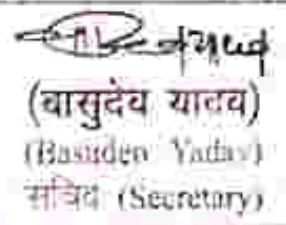 (वासुदेव यादव)
(Basudeo Yadav)
सचिव (Secretary)